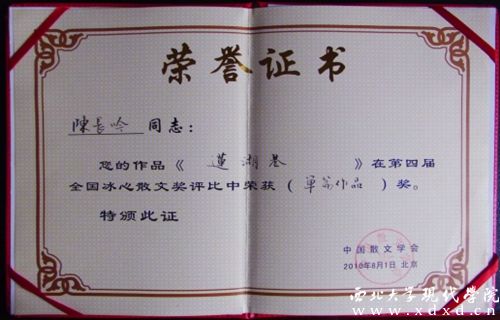 荣誉证书
陳長吟 同志：
您的作品《 莲湖巷 》在第四届
全国冰心散文奖评比中荣获（ 单篇作品 ）奖。
特颁此证
中国散文学会
2010年8月1日 北京
西北大学现代学院
www.xdxd.cn